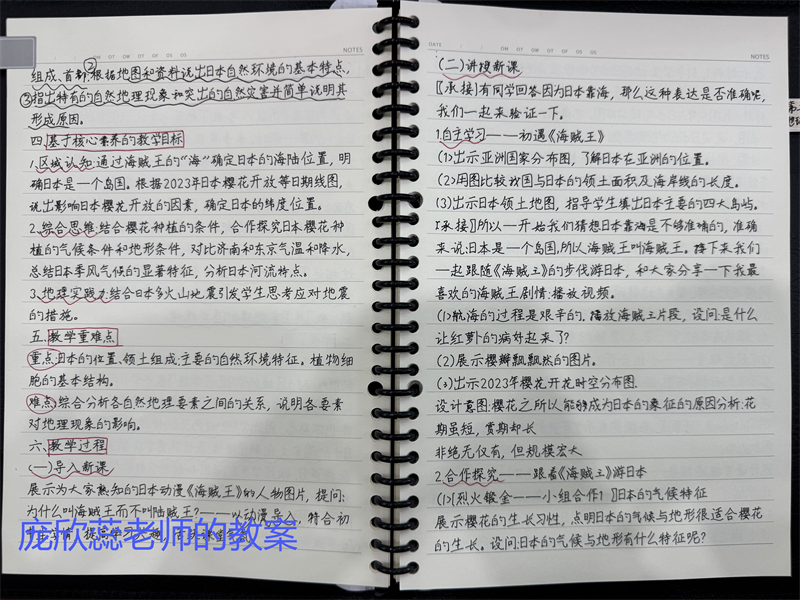 NOTES
组成、首都②根据地图和资料说出日本自然环境的基本特点,
③指出特有的自然地理现象和突出的自然灾害并简单说明其
形成原因。
四.基于核心素养的教学目标
1.区域认知:通过海贼王的“海”确定日本的海陆位置,明
确日本是一个岛国。根据2023年日本樱花开放等日期线图,
说出影响日本樱花开放的因素,确定日本的纬度位置。
2.综合思维:结合樱花种植的条件,合作探究日本樱花种
植的气候条件和地形条件,对比济南和东京气温和降水,
总结日本季风气候的显著特征,分析日本河流特点。
3.地理实践力:结合日本多火山地震引发学生思考应对地震
的措施。
五.教学重难点
重点:日本的位置、领土组成:主要的自然环境特征。植物细
胞的基本结构。
难点:综合分析各自然地理要素之间的关系,说明各要素
对地理现象的影响。
六.教学过程
(一)导入新课
展示为大家熟知的日本动漫《海贼王》的人物图片,提问:
为什么叫海贼王而不叫陆贼王?——以动漫导入,符合初
庞欣蕊老师的教案
DATE
NOTES
(二)讲授新课
[承接]有同学回答因为日本靠海,那么这种表达是否准确呢,
我们一起来验证一下。
1.自主学习——初遇《海贼王》
(1)出示亚洲国家分布图,了解日本在亚洲的位置。
(2)用图比较我国与日本的领土面积及海岸线的长度。
(3)出示日本领土地图,指导学生填出日本主要的四大岛屿。
[承接]所以一开始我们猜想日本靠海是不够准确的,准确
来说:日本是一个岛国,所以海贼王叫海贼王。接下来我们
一起跟随《海贼王》的步伐游日本,和大家分享一下我最
喜欢的海贼王剧情:播放视频。
(1)航海的过程是艰辛的。播放海贼王片段,设问:是什么
让红萝卜的病好起来了?
(2)展示樱瓣飘飘然的图片。
(3)出示2023年樱花开花时空分布图.
设计意图:樱花之所以能够成为日本的象征的原因分析:花
期虽短,赏期却长
非绝无仅有,但规模宏大
2.合作探究——跟着《海贼王》游日本
(1)[烈火锻金——小组合作1]日本的气候特征
展示樱花的生长习性,点明日本的气候与地形很适合樱花
的生长。设问:日本的气候与地形有什么特征呢?